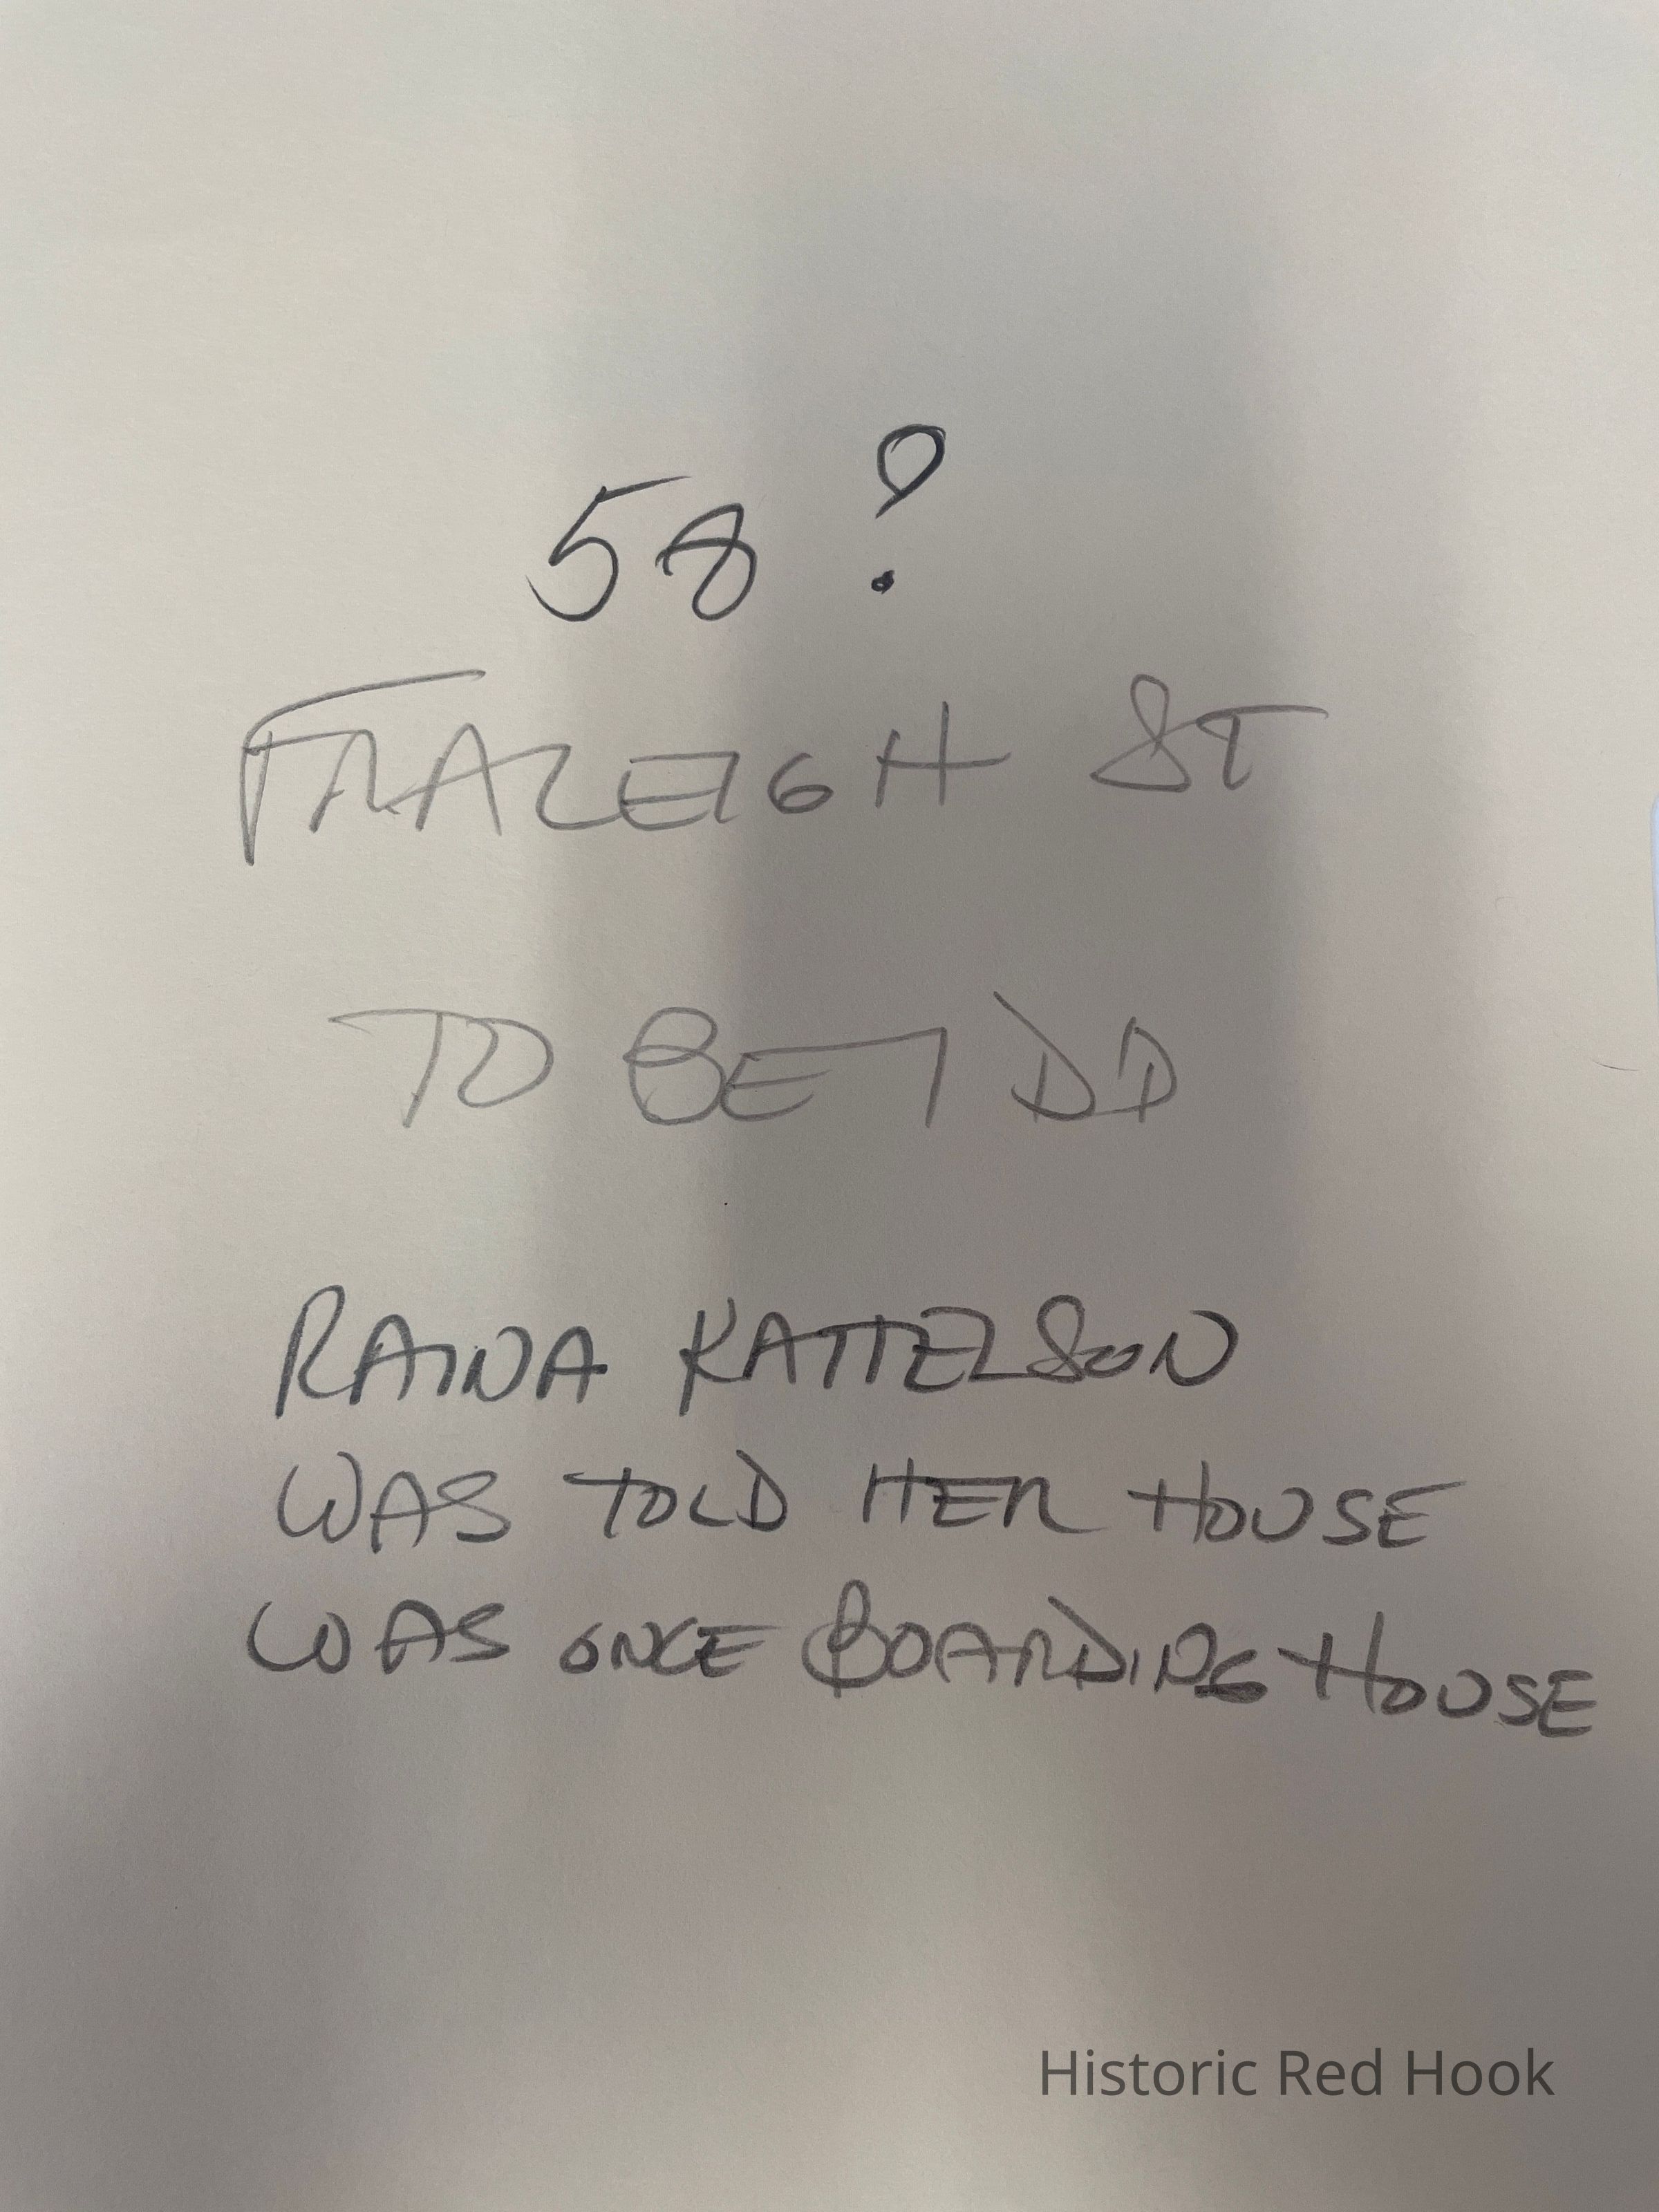 58 ?
FRALEIGH ST
TO BE IDD
RAINA KATTELSON
WAS TOLD HER HOUSE
WAS ONCE BOARDING HOUSE
Historic Red Hook